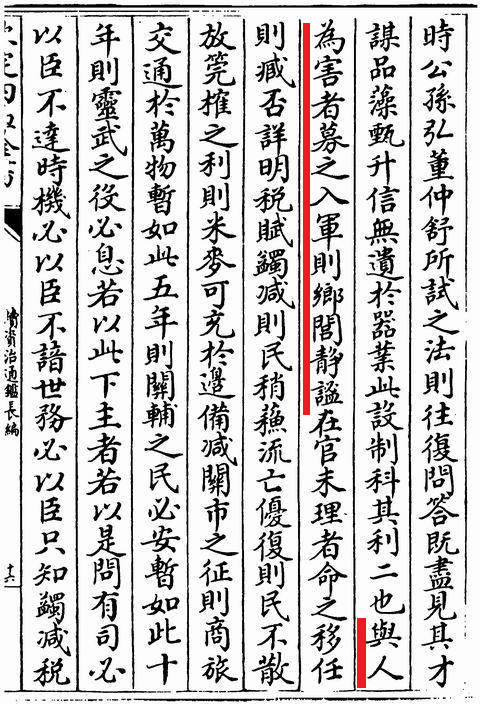 時公孫弘董仲舒所試之法則往復問答既盡見其才
謀品藻甄升信無遺於器業此設制科其利二也與人
為害者募之入軍則鄉閭靜謐在官未理者命之移任
則臧否詳明稅賦蠲減則民稍蘓流亡優復則民不散
放筦榷之利則米麥可充於邊備減關市之征則商旅
交通於萬物暫如此五年則關輔之民必安暫如此十
年則靈武之役必息若以此下主者若以是問有司必
以臣不達時機必以臣不諳世務必以臣只知蠲減稅
續資治通鑑長編
十六